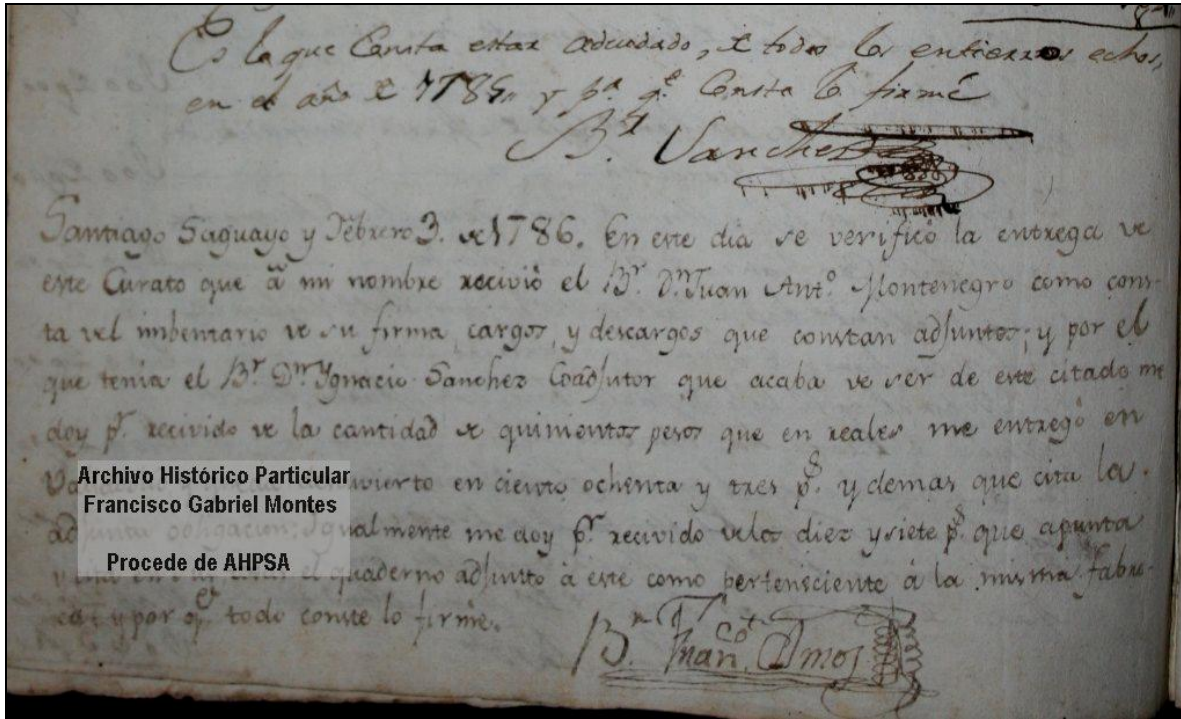 Es lo que Consta estar adeudado, de todos los entierros echos,
en el año de 1785 y pa. qe. Consta lo firmé
Br. Sanchez
Santiago Saguayo y Febrero 3. de 1786. En este dia se verificó la entrega de
este Curato que â mi nombre recivió el Br. Dn. Juan Anto. Montenegro como cons-
ta del imbentario de su firma, cargos, y descargos que constan adjuntos; y por el
que tenia el Br. Dn. Ygnacio Sanchez Coadjutor que acaba de ser de este citado me
doy pr. recivido de la cantidad de quinientos pesos que en reales me entregó en
en ciento ochenta y tres ps. y demas que cita la
adjunta obligacion; Igualmente me doy pr. recivido delos diez y siete ps. que apunta
el quaderno adjunto à este como pertensciente á la misma fabri-
ca; y por qe. todo conste lo firmé.
Br. Juan Amos
Archivo Histórico Particular
Francisco Gabriel Montes
Procede de AHPSA